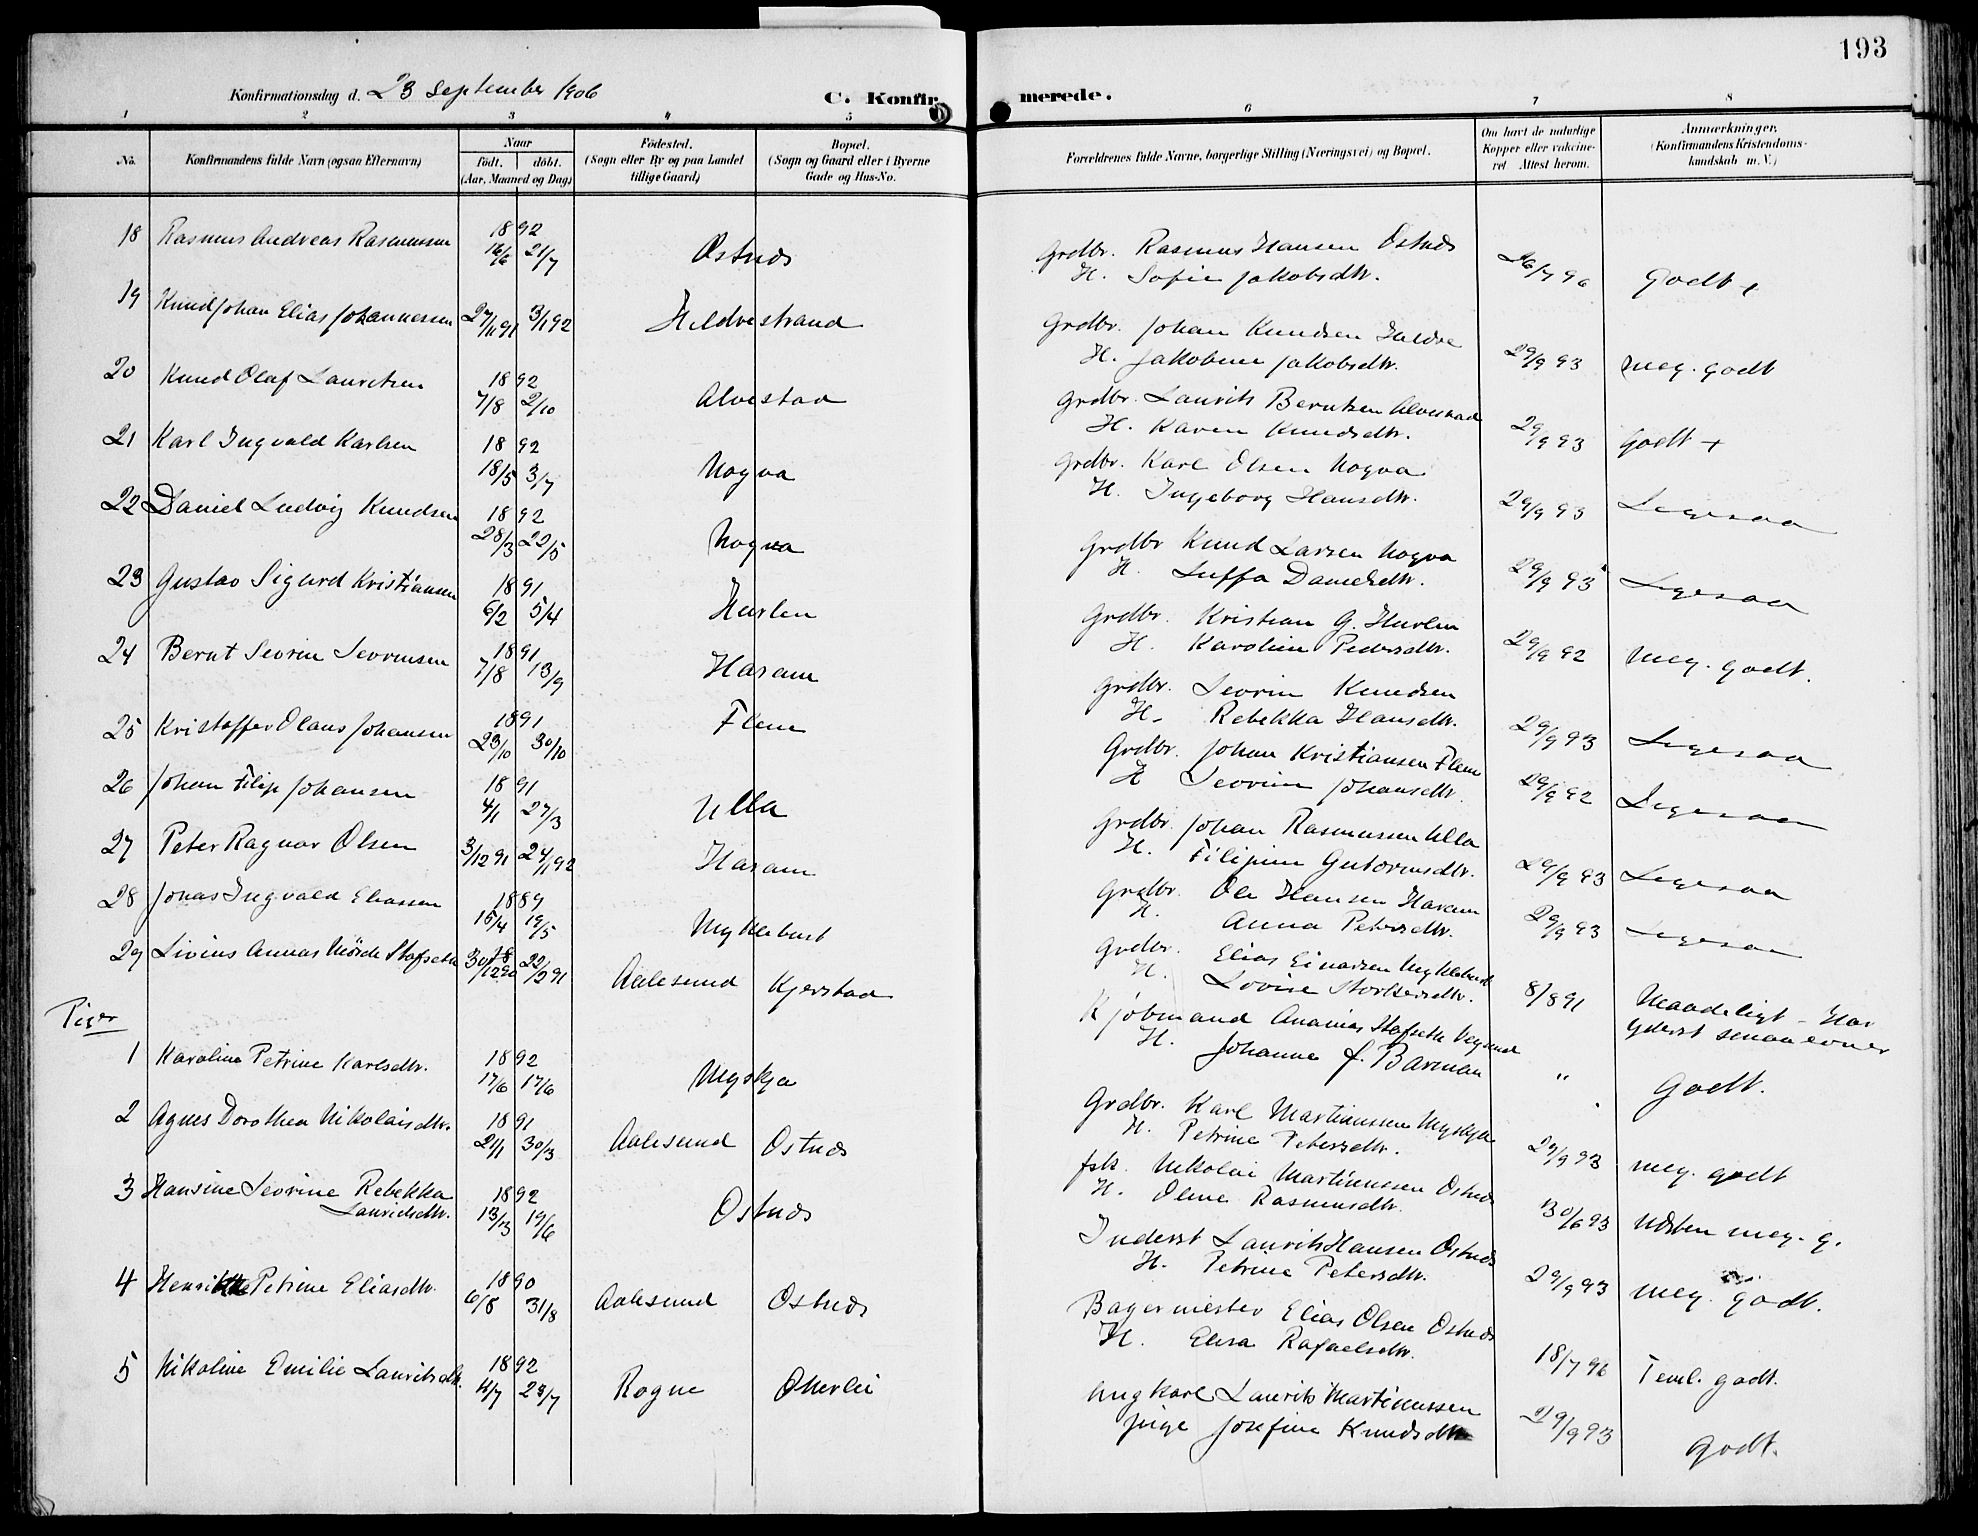 193
Konfirmationsdag d. 23 September 1906
C. Konfirmerede.
1 2 3 4 5 6 7 8
No.
Konfirmandens fulde Navn (ogsaa Efternavn)
Naar
født. døbt.
(Aar, Maaned og Dag)
Fødested.
(Sogn eller By og paa Landet
tillige Gaard)
Bopæl.
(Sogn og Gaard eller i Byerne
Gade og Hus-No.
Forældrenes fulde Navne, borgerlige Stilling (Næringsvei) og Bopæl.
Om havt de naturlige
Kopper eller vaccine-
ret Attest herom.
Anmærkninger,
(Konfirmandens Kristendoms-
kundskab m. V.)
18 Rasmus Andreas Rasmussen 1892 16/6 21/7 Østnes Grdbr. Rasmus Hansen Østnes 26/7 96 Godt +
H. Sofie Jakobsdtr.
19 Knud Johan Elias Johannessen 27/11 91 3/1 92 Hildrestrand Grdbr. Johan Knudsen Hildre 29/9 93 Meg. godt
H. Jakobine Jakobsdtr.
20 Knud Olaf Lauritsen 1892 7/8 2/10 Alvestad Grdbr. Laurits Berntsen Alvestad 29/9 93 Godt +
H. Karen Knudsdtr.
21 Karl Ingvald Karlsen 1892 18/5 3/7 Nogva Grdbr. Karl Olsen Nogva 29/9 93 Ligesaa
H. Ingeborg Hansdtr.
22 Daniel Ludvig Knudsen 1892 28/3 22/5 Nogva Grdbr Knud Larsen Nogva 29/9 93 Ligesaa
H. Luffa Danielsdtr.
23 Gustav Sigurd Kristiansen 1891 6/2 5/4 Hurlen Grdbr. Kristian G. Hurlen 29/9 92 Meg. godt.
H. Karoline Pedersdtr.
24 Bernt Sevrin Sevrinsen 1891 7/8 13/9 Haram Grdbr. Sevrin Knudsen 29/9 93 Ligesaa
H. Rebekka Hansdtr.
25 Kristoffer Olaus Johansen 1891 23/10 30/10 Flem Grdbr. Johan Kristiansen Flem 29/9 92 Ligesaa
H Sevrine Johansdtr.
26 Johan Filip Johansen 1891 4/1 27/3 Ulla Grdbr. Johan Rasmussen Ulla 29/9 93 Ligesaa
H. Filipine Guttormsdtr.
27 Peter Ragnar Olsen 3/12 91 24/1 92 Haram Grdbr. Ole Hansen Haram 29/9 93 Ligesaa
H. Anna Petersdtr.
28 Jonas Ingvald Eliassen 1889 15/4 19/5 Myklebust Grdbr. Elias Einarsen Myklebust 8/8 91 Maadeligt - Har
H. Lovise Storkersdtr. yderst smaa evner
29 Livius Annas Mørch Stafseth 30/12 90 22/2 91 Aalesund Kjerstad Kjøbmand Ananias Stafseth Vegsund " Godt.
H. Johanna J. Barman
Piger
1 Karoline Petrine Karlsdtr. 1892 17/6 17/6 Myskja Grdbr. Karl Martinussen Myskja 29/9 93 meg. godt
H. Petrine Petersdtr.
2 Agnes Dorothea Nikolaisdtr. 1891 21/1 30/3 Aalesund Østnes fsk. Nikolai Martinussen Østnes 30/6 93 Næsten meg. g.
H. Oline Rasmusdtr.
3 Hansine Sevrine Rebekka 1892 13/3 19/6 Østnes Inderst Laurits Hansen Østnes 29/9 93 meg. godt.
Lauritsdtr. H. Petrine Petersdtr.
4 Henrikke Petrine Eliasdtr. 1890 6/8 31/8 Aalesund Østnes Bagermester Elias Olsen Østnes 18/7 96 Teml. godt.
H. Elisa Rafaelsdtr.
5 Nikoline Emilie Lauritsdtr. 1892 4/7 23/7 Rogne Otterlei Ungkarl Laurits Martinussen 29/9 93 Godt.
Pige Josefine Knudsdtr